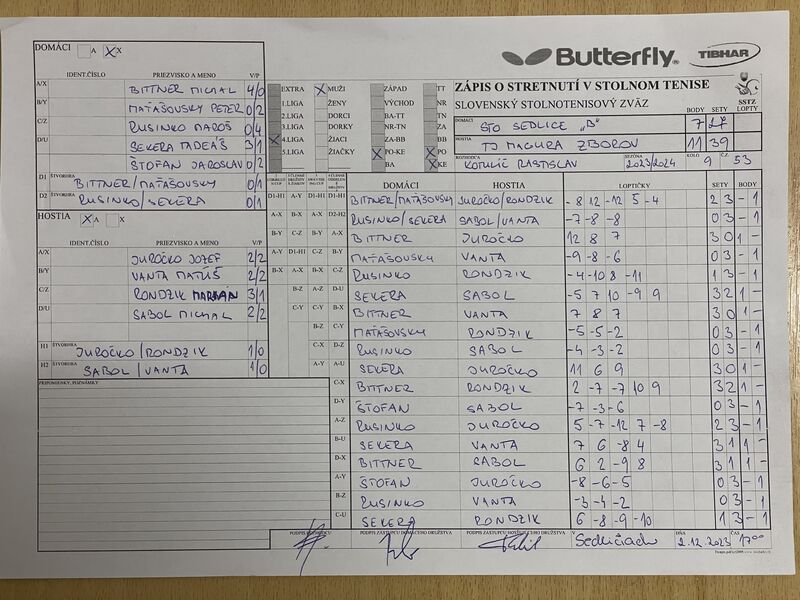 DOMÁCI A X X
Butterfly TIBHAR
IDENT.ČÍSLO PRIEZVISKO A MENO V/P
A/X BITTNER MICHAL 4/0
B/Y MAŤAŠOVSKÝ PETER 0/2
C/Z RUSINKO MAROŠ 0/4
D/U SEKERA TADEÁŠ 3/1
ŠTOFAN JAROSLAV 0/2
D1 ŠTVORHRA BITTNER/MAŤAŠOVSKÝ 0/1
D2 ŠTVORHRA RUSINKO/SEKERA 0/1
HOSTIA X A X
IDENT.ČÍSLO PRIEZVISKO A MENO V/P
A/X JUROČKO JOZEF 2/2
B/Y VANTA MATÚŠ 2/2
C/Z RONDZIK MARIÁN 3/1
D/U SABOL MICHAL 2/2
H1 ŠTVORHRA JUROČKO/RONDZIK 1/0
H2 ŠTVORHRA SABOL/VANTA 1/0
PRIPOMIENKY, POZNÁMKY
EXTRA X MUŽI ZÁPAD TT
1.LIGA ŽENY VÝCHOD NR
2.LIGA DORCI BA-TT TN
3.LIGA DORKY NR-TN ZA
X 4.LIGA ŽIACI ZA-BB BB
5.LIGA ŽIAČKY X PO-KE X PO
BA X KE
ZÁPIS O STRETNUTÍ V STOLNOM TENISE
SLOVENSKÝ STOLNOTENISOVÝ ZVÄZ
SSTZ
BODY SETY LOPTY
DOMÁCI STO SEDLICE „B" 7 27
HOSTIA TJ MAGURA ZBOROV 11 39
ROZHODCA KOTULIČ RASTISLAV SEZÓNA 2023/2024 KOLO 9 Č.Z 53
DOMÁCI HOSTIA LOPTIČKY SETY BODY
D1-H1 D1-H1 D1-H1 D1-H1 BITTNER/MAŤAŠOVSKÝ JUROČKO/RONDZIK -8 12 -12 5 -4 2 3 - 1
A-X B-X A-X D2-H2 RUSINKO/SEKERA SABOL/VANTA -7 -8 -8 0 3 - 1
B-Y C-Z B-Y A-X BITTNER JUROČKO 12 8 7 3 0 1 -
A-Y D1-H1 C-Z B-Y MAŤAŠOVSKÝ VANTA -9 -8 -6 0 3 - 1
B-X A-X B-X C-Z RUSINKO RONDZIK -4 -10 8 -11 1 3 - 1
B-Z A-Z D-U SEKERA SABOL -5 7 10 -9 9 3 2 1 -
C-Y C-Y B-X BITTNER VANTA 7 8 7 3 0 1 -
B-Z C-Y MAŤAŠOVSKÝ RONDZIK -5 -5 -2 0 3 - 1
C-X D-Z RUSINKO SABOL -4 -3 -2 0 3 - 1
A-Y A-U SEKERA JUROČKO 11 6 9 3 0 1 -
C-X BITTNER RONDZIK 2 -7 -7 10 9 3 2 1 -
D-Y ŠTOFAN SABOL -7 -3 -6 0 3 - 1
A-Z RUSINKO JUROČKO 5 -7 -12 7 -8 2 3 - 1
B-U SEKERA VANTA 7 6 -8 4 3 1 1 -
D-X BITTNER SABOL 6 2 -9 8 3 1 1 -
A-Y ŠTOFAN JUROČKO -8 -6 -5 0 3 - 1
B-Z RUSINKO VANTA -3 -4 -2 0 3 - 1
C-U SEKERA RONDZIK 6 -8 -9 -10 1 3 - 1
PODPIS ROZHODCU PODPIS ZÁSTUPCU DOMÁCEHO DRUŽSTVA PODPIS ZÁSTUPCU HOSŤUJÚCEHO DRUŽSTVA V Sedliciach DŇA 2.12.2023 ČAS 17 00